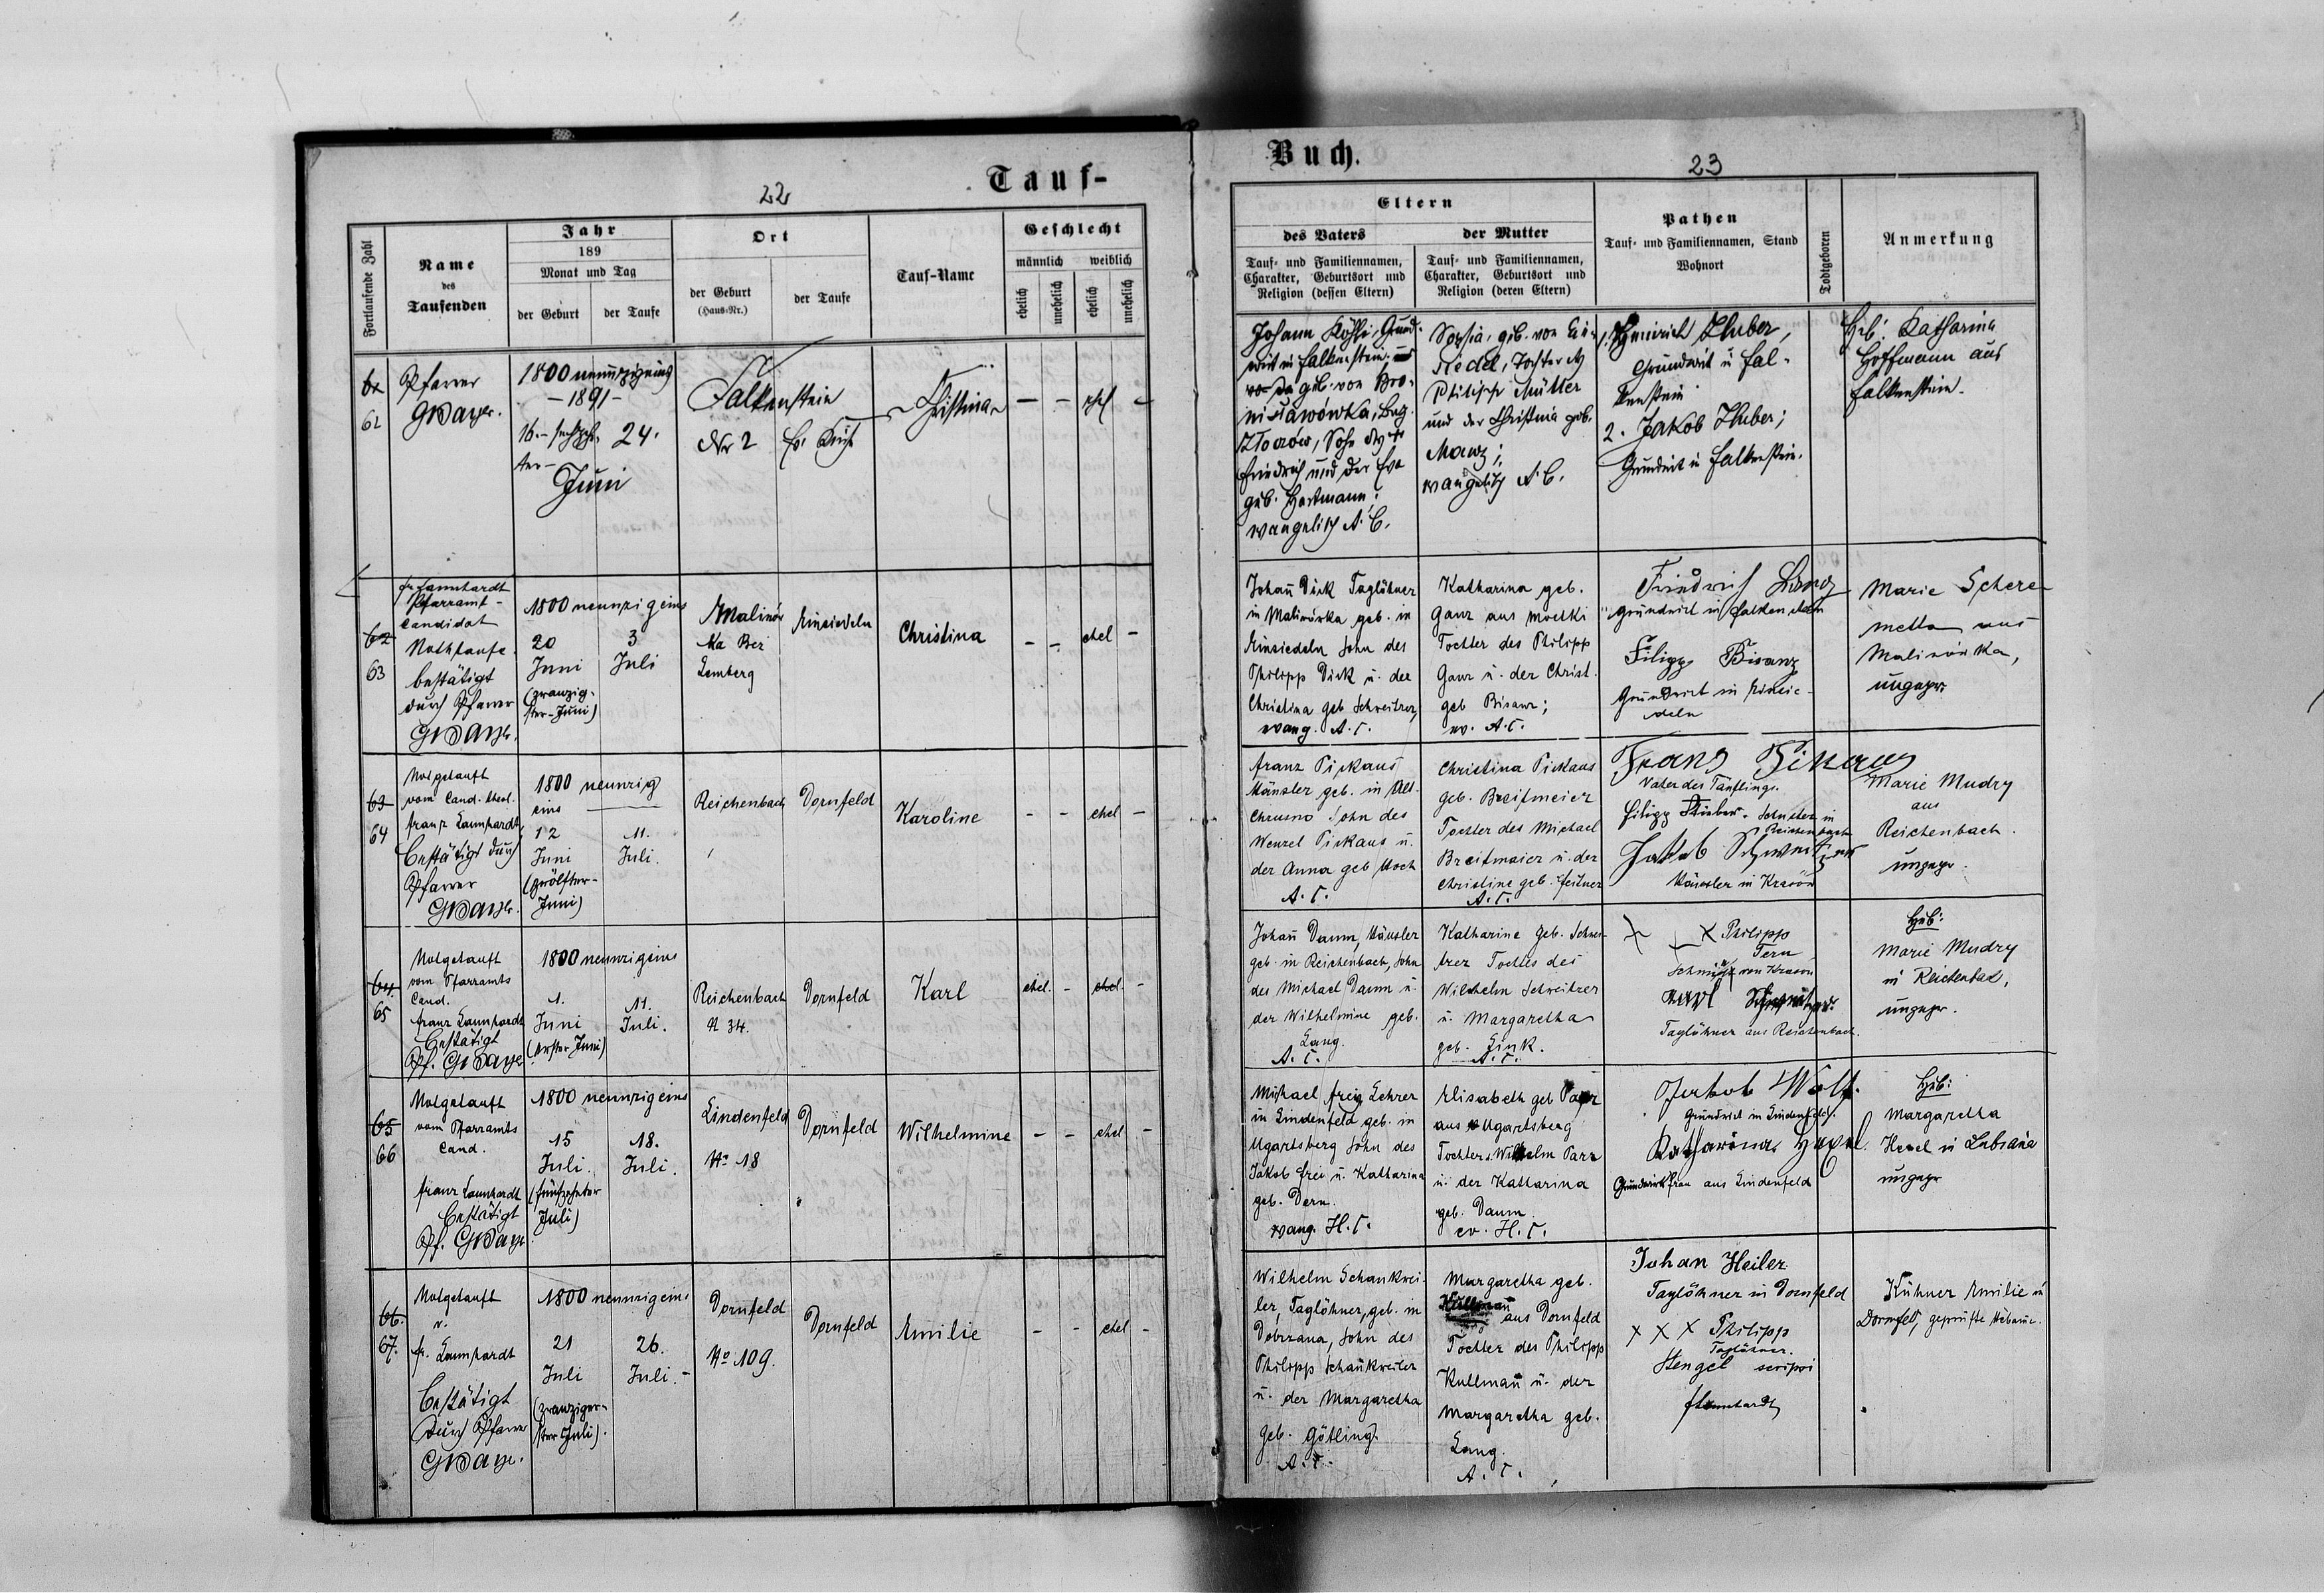 22
Tauf-
Fortlaufende Zahl
Name
des
Taufenden
Jahr
189
Monat und Tag
der Geburt
der Taufe
Ort
der Geburt
(Haus-Nr.)
der Taufe
Tauf-Name
Geschlecht
männlich
weiblich
ehelich
unehelich
ehelich
unehelich
62
Pfarrer
1800 neunzigeins
- 1891 -
16. - sechzehn-
ter -
Juni
24.
Falkenstein
Nr 2
Ev. Kirche
Christina
—
—
ehel
—
62
63
Fr Lannhardt
Pfarramt-
Candidat
Nothtaufe.
bestätigt
durch Pfarrer
1800 neunzigeins
20
Juni
(zwanzig-
ster - Juni)
3
Juli
Malinów
ka Bei
Lemberg
Einsiedeln
Christina
-
-
ehel
-
63
64
Notgetauft
vom Cand. theol.
Franz Lannhardt
Bestätigt durch
Pfarrer
1800 neunzig
eins
12
Juni
(zwölfter-
Juni)
11.
Juli.
Reichenbach
Dornfeld
Karoline
-
-
ehel
-
64.
65
Notgetauft
vom Pfarramts
Cand.
Franz Lannhardt
Bestätigt
Pf.
1800 neunzigeins
1.
Juni
(Erster Juni)
11.
Juli.
Reichenbach
N 34.
Dornfeld
Karl
ehel.
-
ehel
-
65
66
Notgetauft
vom Pfarramts
Cand.
Franz Lannhardt
Bestätigt
Pf.
1800 neunzigeins
15
Juli.
(fünfzehnter
Juli)
18.
Juli.
Lindenfeld
No 18
Dornfeld
Wilhelmine
-
-
ehel
-
66.
67.
Notgetauft
v.
Fr. Lannhardt
Bestätigt
durch Pfarrer
1800 neunzigeins
21
Juli
26.
Juli. -
Dornfeld
No 109.
Dornfeld
Emilie
-
-
ehel
-
Buch.
23
Eltern
des Vaters
Tauf- und Familiennamen,
Charakter, Geburtsort und
Religion (dessen Eltern)
der Mutter
Tauf- und Familiennamen,
Charakter, Geburtsort und
Religion (deren Eltern)
Pathen
Tauf- und Familiennamen, Stand
Wohnort
Todtgeboren
Anmerkung
Johann Köhli, Grund-
wirt in Falkenstein;
geb. von Bro-
nisławówka, Bez.
Złoczów, Sohn des
Friedrich und der Eva
geb. Hartmann;
evangelisch A. C.
Sophia, geb. von Ein-
siedel, Tochter des
Philipp Müller
und der Christina geb.
Manz;
evangelisch A. C.
1. Heinrich Huber,
Grundwirt in Fal-
kenstein
2. Jakob Huber;
Grundwirt in Falkenstein.
Heb. Katharina
Hoffmann aus
Falkenstein.
Johann Dick Taglöhner
in Malinówka geb. in
Einsiedeln Sohn des
Philipp Dick u. der
Christina geb Schweitzer,
evang. A. C.
Katharina geb.
Ganz aus Mostki
Tochter des Philipp
Ganz u. der Christ.
geb Bisanz;
ev. A. C.
Friedrich Lang
Grundwirt in Falkenstein
Filipp Bisanz
Grundwirt in Einsie-
deln
Marie Schere
metta aus
Malinówka,
ungepr.
Franz Pickaus
Häusler geb. in Alt
Chrusno Sohn des
Wenzel Pickaus u.
der Anna geb Hoch
A. C.
Christina Pickaus
geb. Breitmeier
Tochter des Michael
Breitmaier u. der
Christine geb.
A. C.
Franz
Vater des Täuflings.
Filipp Stieber. Schuster in
Reichenbach
Jakob
Häusler in Krasów
Marie Mudry
aus
Reichenbach.
ungepr.
Johann Daum, Häusler
geb. in Reichenbach, Sohn
des Michael Daum u.
der Wilhelmine geb.
Lang.
A. C.
Katharine geb. Schwei-
tzer Tochter des
Wilhelm Schweitzer
u. Margaretha
geb. Zink.
A. C.
X Philipp
Fern
Schmied von Krasów
Karl
Taglöhner aus Reichenbach.
Heb:
Marie Mudry
in Reichenbach,
ungepr.
Michael Frey Lehrer
in Lindenfeld geb. in
Ugartsberg Sohn des
Jakob Frei u. Katharina
geb. Dern.
evang. H. C.
Elisabeth geb Parr
aus Ugartsberg
Tochter d. Wilhelm Parr
u. der Katharina
geb. Daum.
ev. H. C.
Jakob Wolf.
Grundwirt in Lindenfeld.
Katharina Hexel.
Grundwirtsfrau aus Lindenfeld
Heb:
Margaretha
Hexel in Lubiana
ungepr
Wilhelm Schankwei-
ler, Taglöhner, geb. in
Dobrzana, Sohn des
Philipp Schankweiler
u. der Margaretha
geb. Götling.
A. C.
Margaretha geb.
Kullmann
aus Dornfeld
Tochter des Philipp
Kullmann u. der
Margaretha geb.
Lang.
A. C.
Johan Heiler
Taglöhner in Dornfeld
X X X Philipp
Taglöhner.
Stengel scripsi
Kühner Emilie in
Dornfeld, geprüfte Hebame.